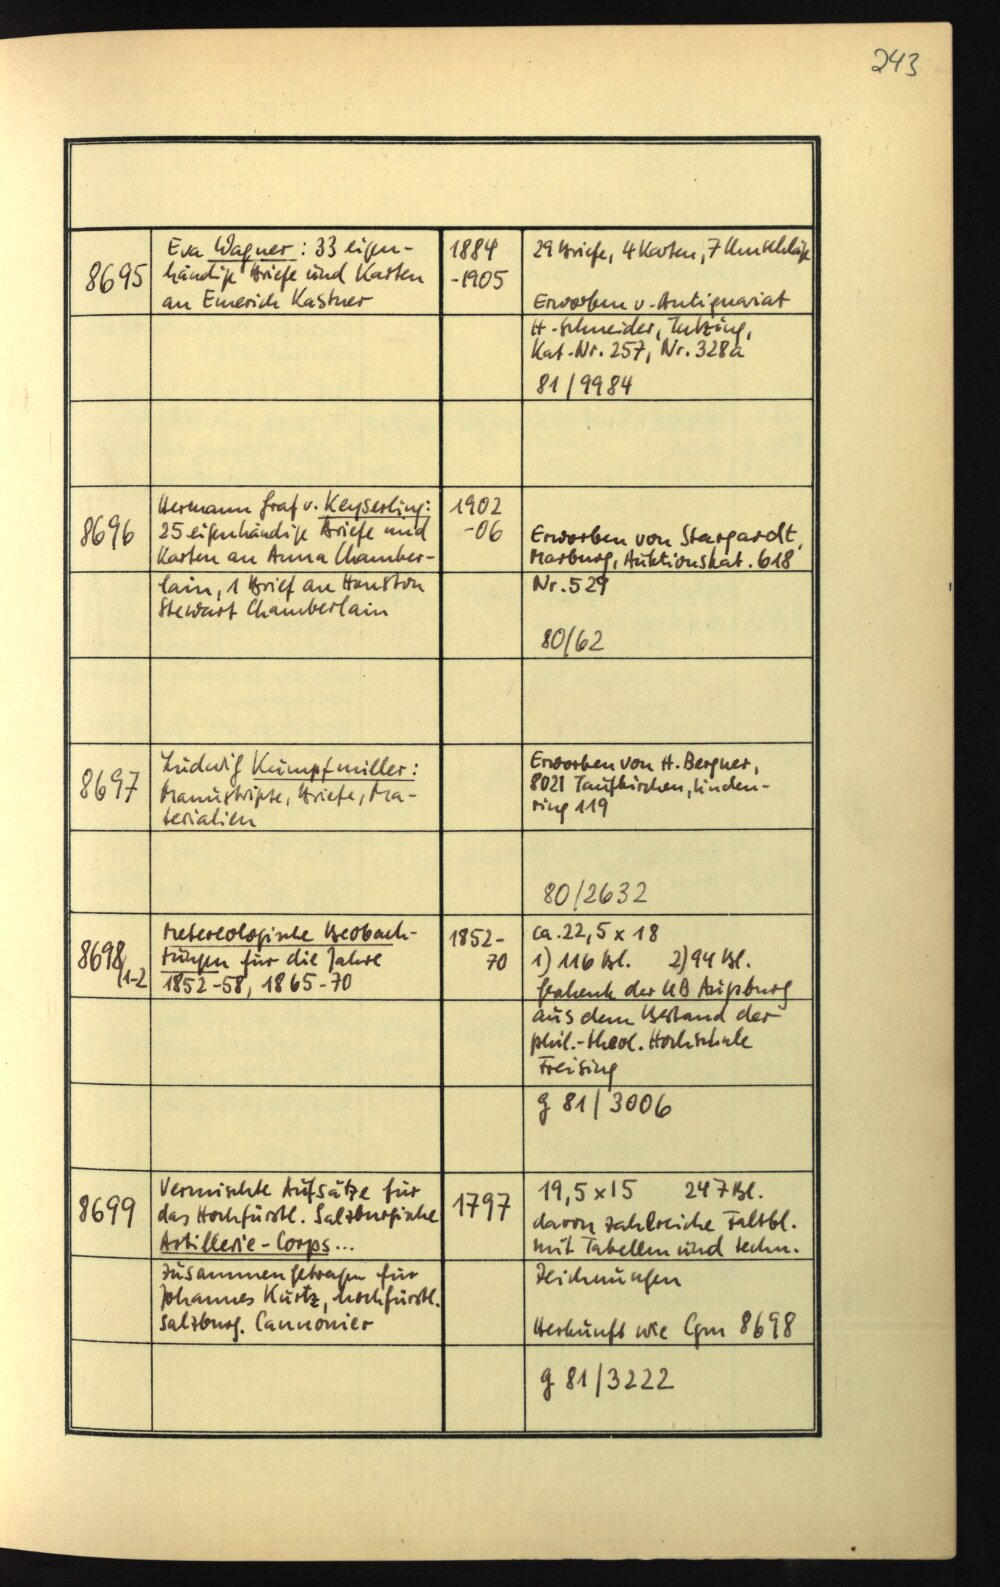 243
8695
Eva Wagner: 33 eigen-
händige Briefe und Karten
an Emerich Kastner
1884
-1905
29 Briefe, 4 Karten, 7 Umschläge
Erworben v. Antiquariat
H. Schneider, Tutzing,
Kat.-Nr. 257, Nr. 328a
81/9984
8696
Hermann Graf v. Keyserling:
25 eigenhändige Briefe und
Karten an Anna Chamber-
lain, 1 Brief an Houston
Stewart Chamberlain
1902
-06
Erworben von Stargardt,
Marburg, Auktionskat. 618
Nr. 529
80/62
8697
Ludwig Kumpfmiller:
Manuskripte, Briefe, Ma-
terialien
Erworben von H. Bergner,
8021 Taufkirchen, Linden-
ring 119
80/2632
8698
(1-2
Metereologische Beobach-
tungen für die Jahre
1852-58, 1865-70
1852-
70
ca. 22,5 x 18
1) 116 Bl. 2) 94 Bl.
Geschenk der UB Augsburg
aus dem Bestand der
phil.-theol. Hochschule
Freising
g 81/3006
8699
Vermischte Aufsätze für
das Hochfürstl. Salzburgische
Artillerie-Corps...
zusammengetragen für
Johannes Kurtz, hochfürstl.
salzburg. Cannonier
1797
19,5 x 15 247 Bl.
davon zahlreiche Faltbl.
mit Tabellen und techn.
Zeichnungen
Herkunft wie Cgm 8698
g 81/3222